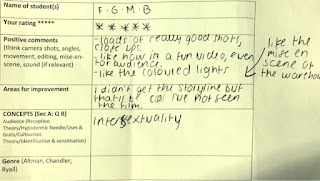 Name of student(s)
F·G·M·B
Your rating *****
* * * * *
Positive comments
(think camera shots, angles,
movement, editing, mise-en-
scene, sound (if relevant)
-loads of really good shots,
close ups.
-like how its a fun video, even
for audience.
-like the coloured lights
like the
mise en
scene of
the
Areas for improvement
I didn't get the storyline but
that'll be cos i've not seen
the film.
CONCEPTS (Sec A: Q B)
Audience (Reception
Theory/Hypodermic Needle/Uses &
Grats/Cultivation
Theory/Identification & sensitisation)
intertextuality
Genre (Altman, Chandler,
Ryall)